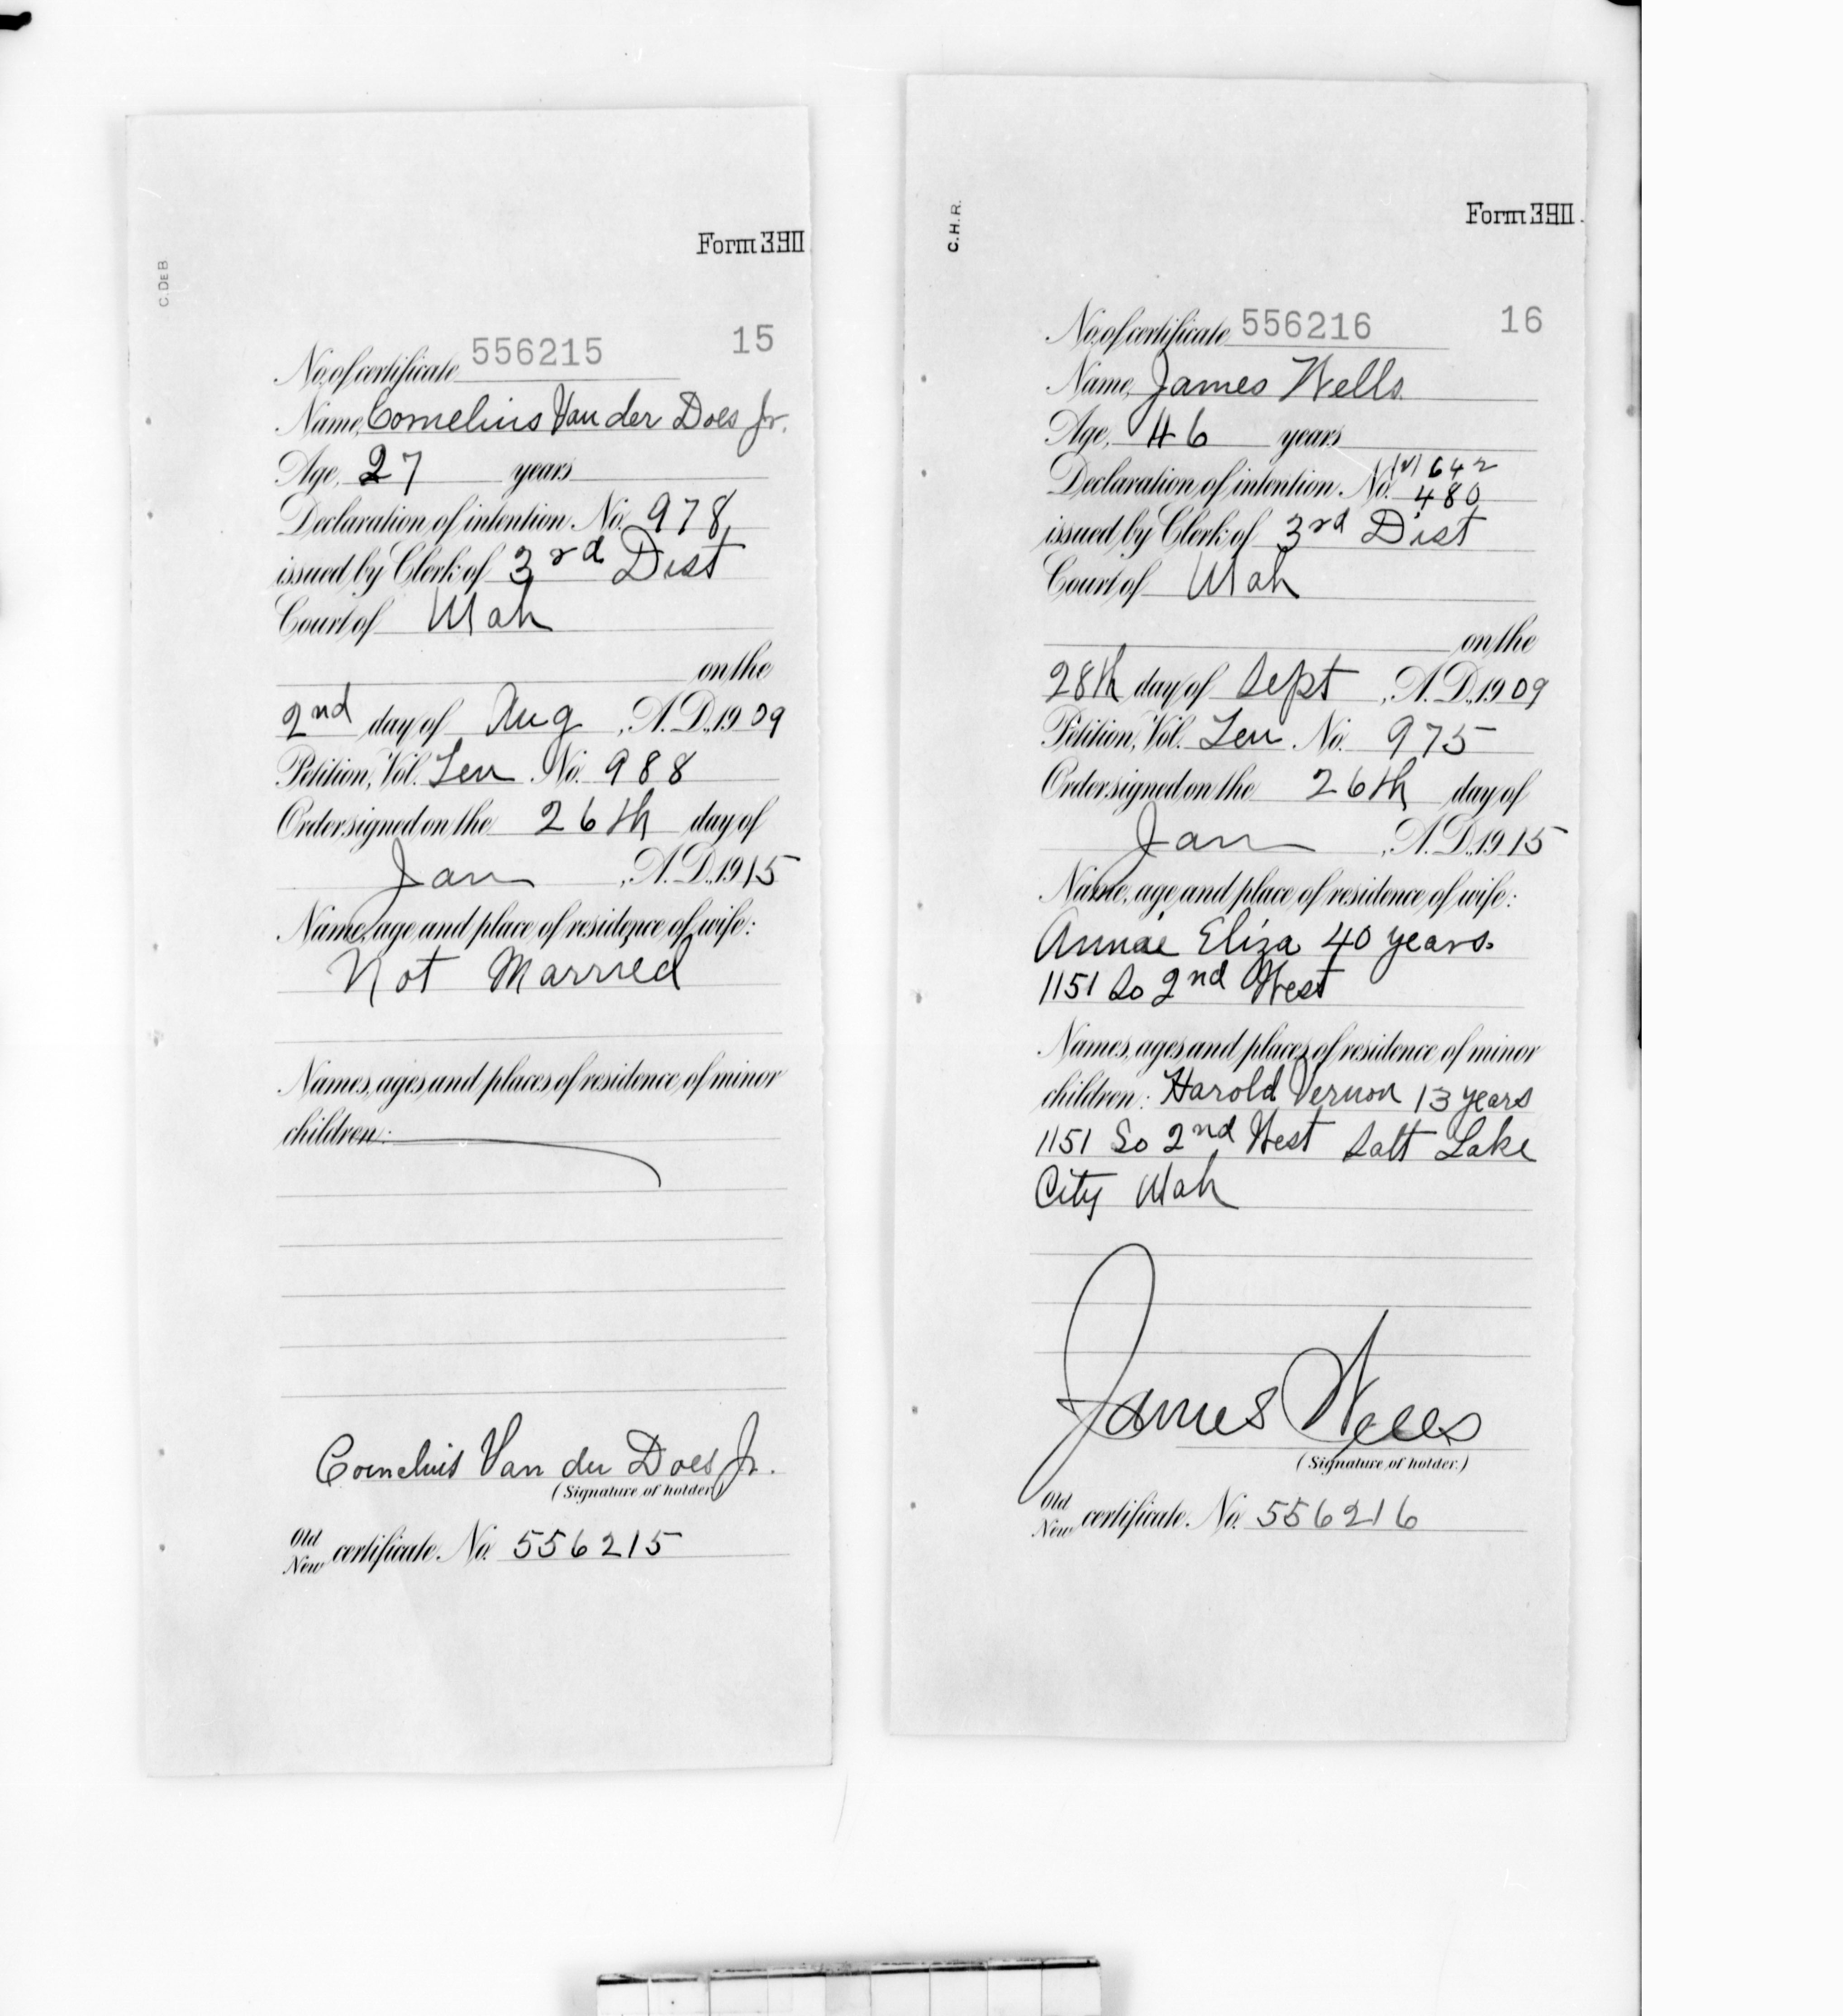 C. DE B
Form 390
No. of certificate 556215 15
Name, Cornelius Van der Does Jr.
Age, 27 years
Declaration of intention. No. 978
issued by Clerk of 3rd Dist
Court of Utah
on the
2nd day of Aug, A.D., 1909
Petition, Vol. Ten No. 988
Order signed on the 26th day of
Jan, A.D., 1915
Name, age and place of residence of wife:
Not Married
Names, ages and places of residence of minor
children:
Cornelius Van der Does Jr.
(Signature of holder)
Old
New certificate. No. 556215
C. H. R.
Form 390.
No. of certificate 556216 16
Name, James Wells
Age, 46 years
642
Declaration of intention. No. 480
issued by Clerk of 3rd Dist
Court of Utah
on the
28th day of Sept, A.D., 1909
Petition, Vol. Ten. No. 975
Order signed on the 26th day of
Jan, A.D., 1915
Name, age and place of residence of wife:
Annie Eliza 40 years.
1151 So 2nd West
Names, ages and places of residence of minor
children: Harold Vernon 13 years
1151 So 2nd West Salt Lake
City Utah
James Wells
(Signature of holder.)
Old
New certificate. No. 556216